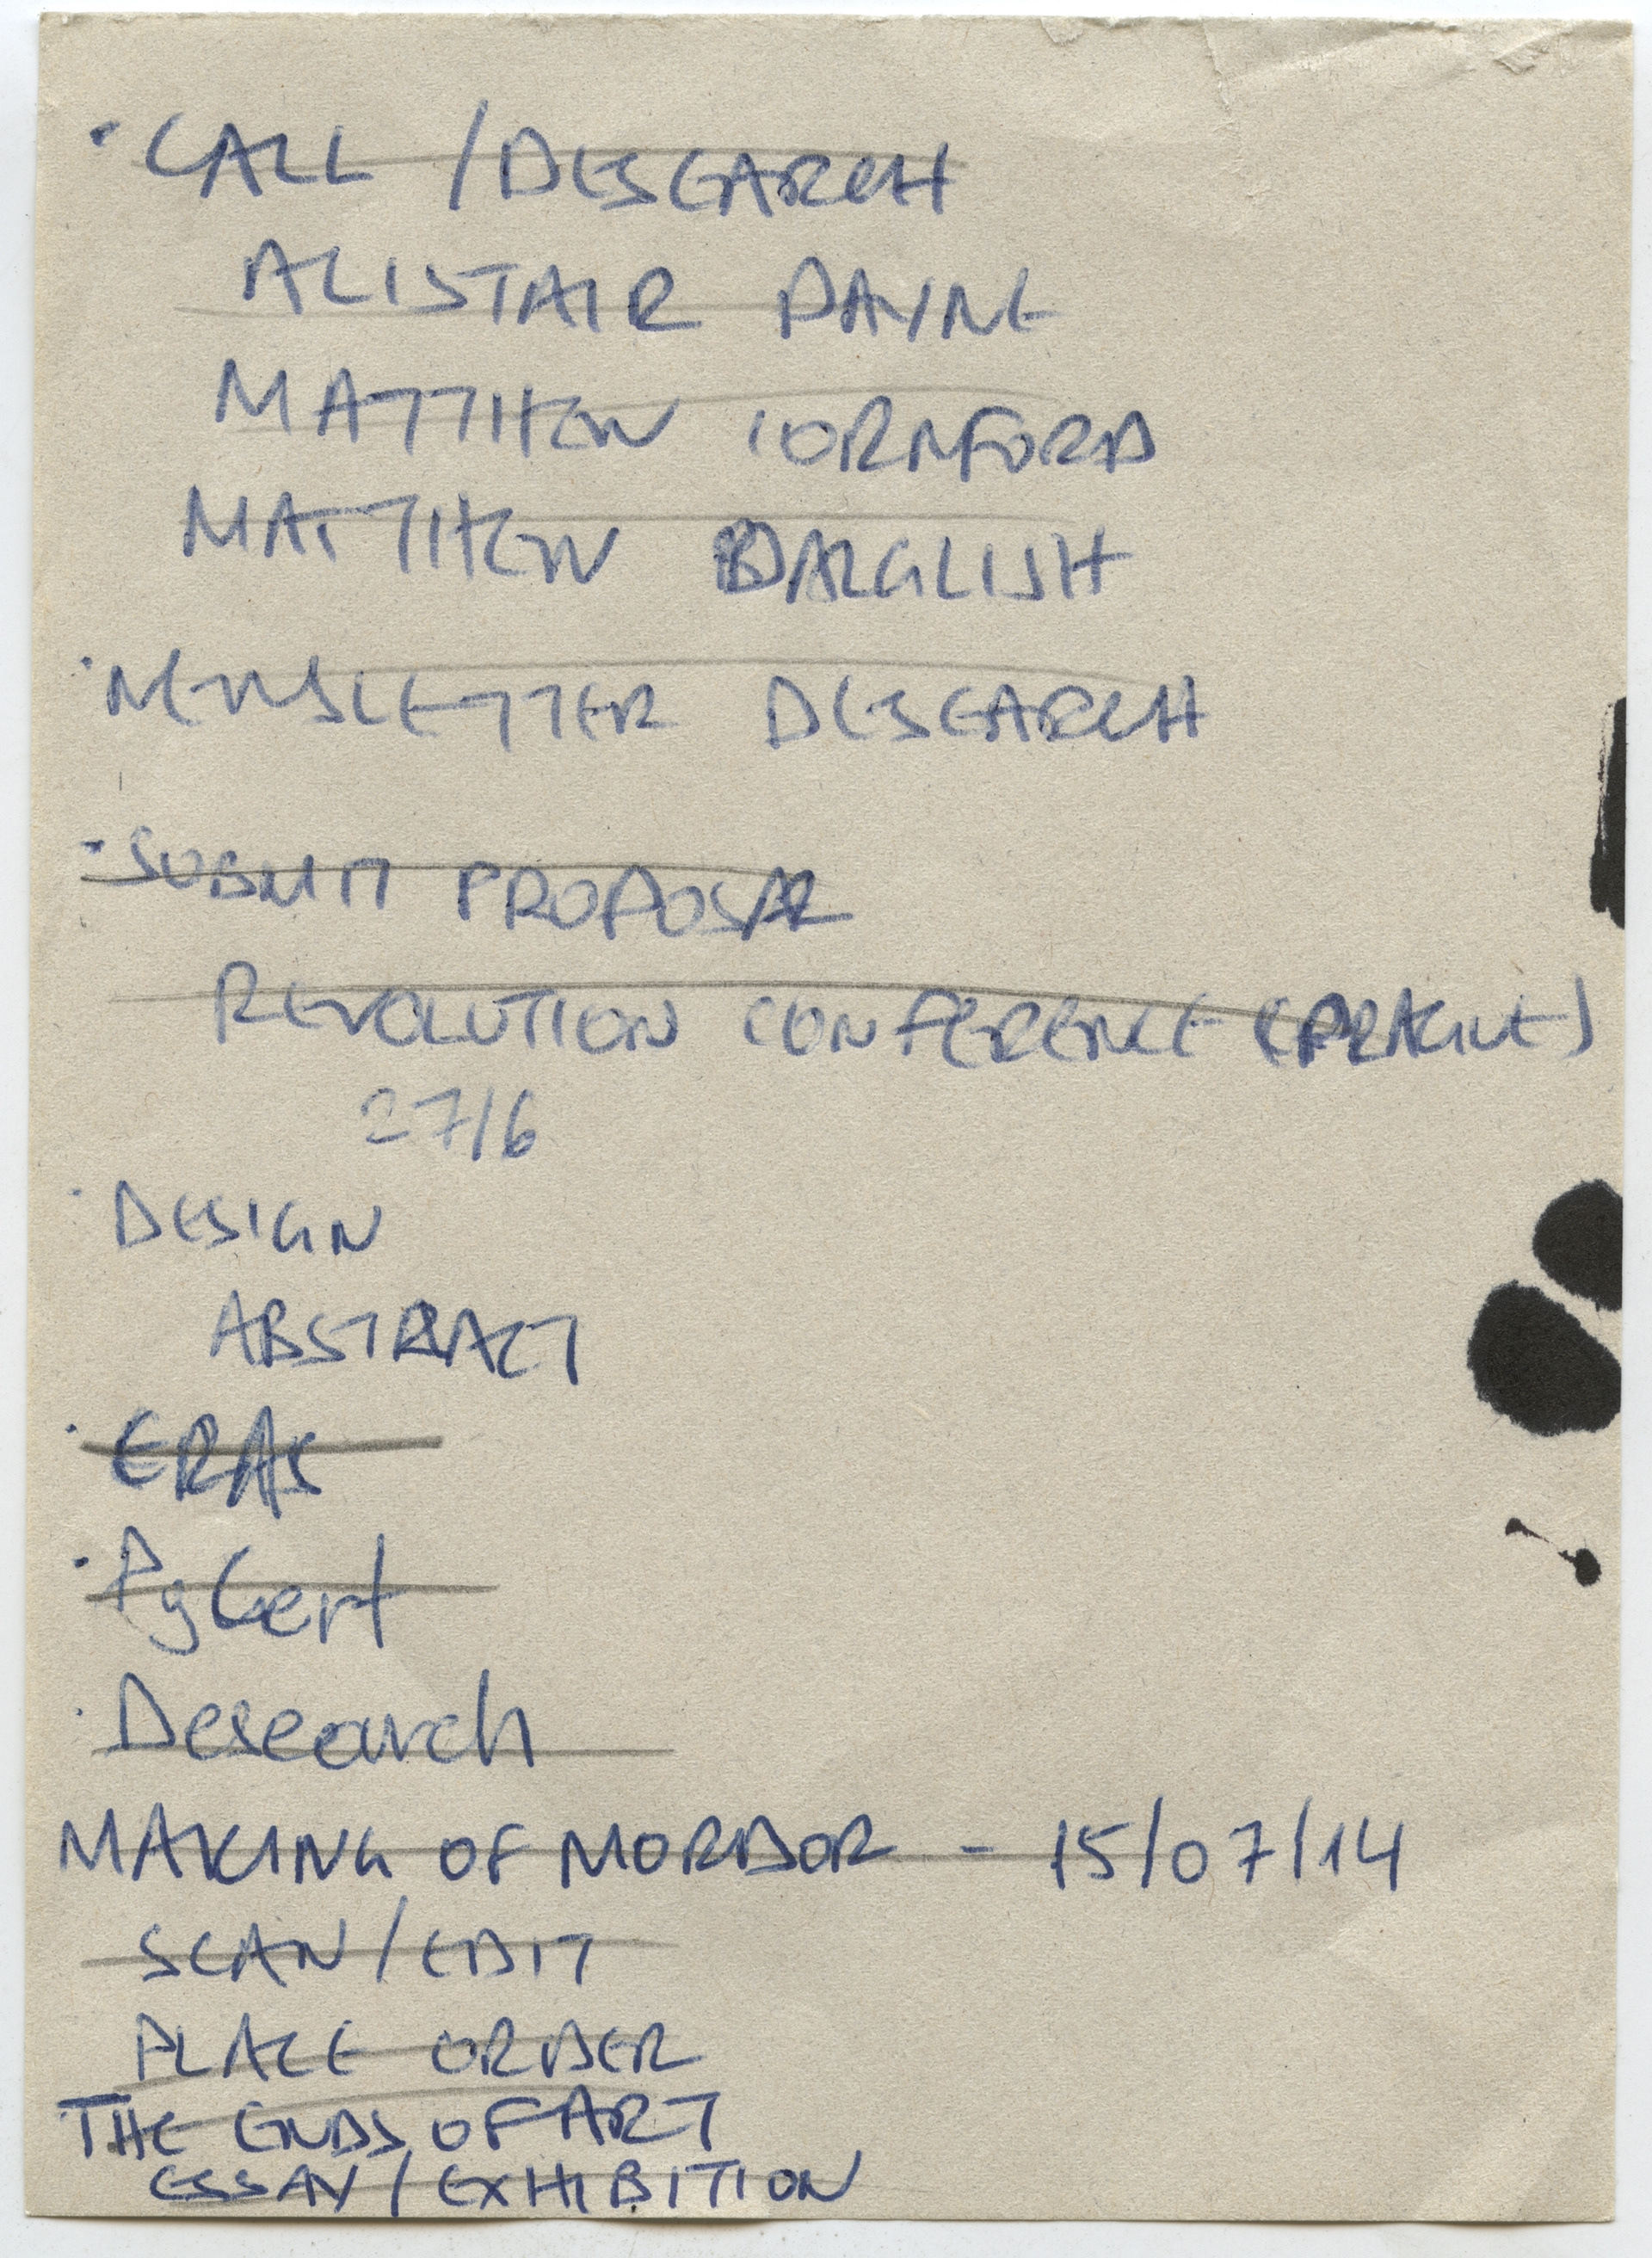 · CALL / DESEARCH
ALISTAIR PAYNE
MATTHEW CORNFORD
MATTHEW DALGLISH
· NEWSLETTER DESEARCH
· SUBMIT PROPOSAL
REVOLUTION CONFERENCE (PRAGUE)
27/6
· DESIGN
ABSTRACT
· ERAS
· Desearch
MAKING OF MORDOR - 15/07/14
SCAN / EDIT
PLACE ORDER
THE ENDS OF ART
ESSAY / EXHIBITION